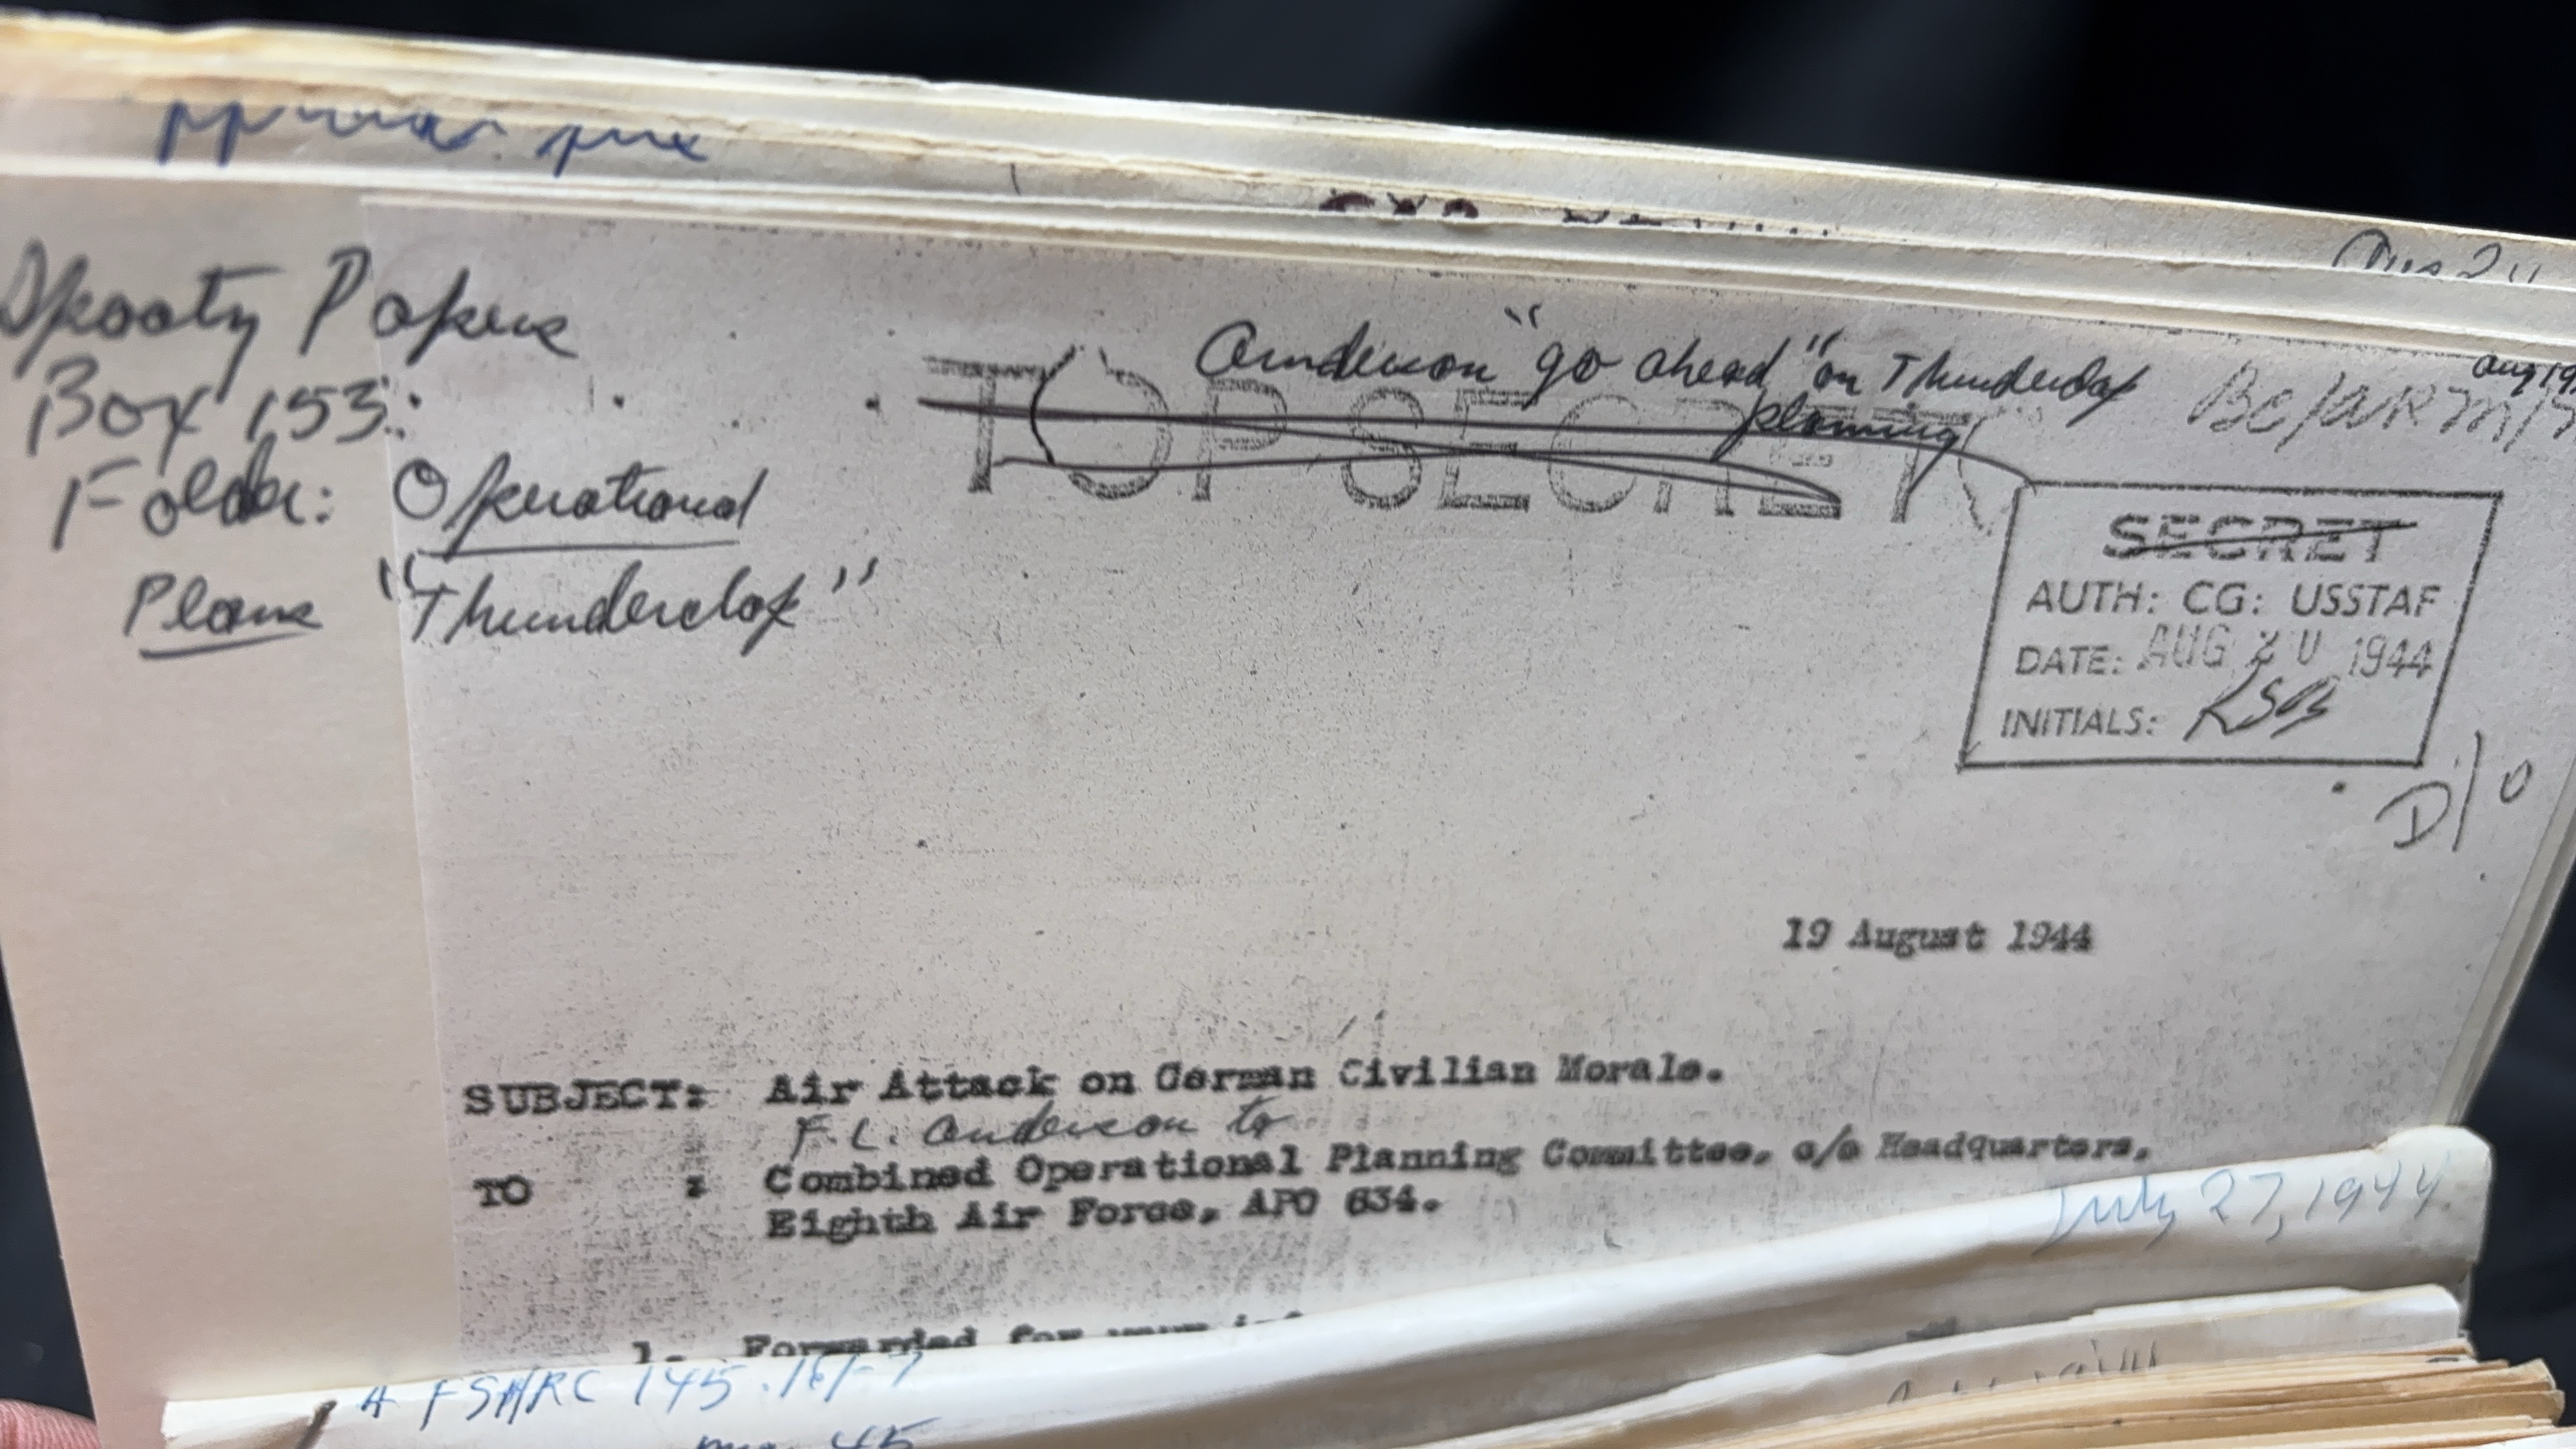 Spaatz Papers
Box 153:
Folder: Operational
Plans "Thunderclap"
Anderson "go ahead" on Thunderclap
planning
TOP SECRET
SECRET
AUTH: CG: USSTAF
DATE: AUG 20 1944
INITIALS:
D/O
19 August 1944
SUBJECT: Air Attack on German Civilian Morale.
F.L. Anderson to
TO : Combined Operational Planning Committee, c/o Headquarters,
Eighth Air Force, APO 634.
July 27, 1944
1. Forwarded for your
AFSHRC 145.161-7